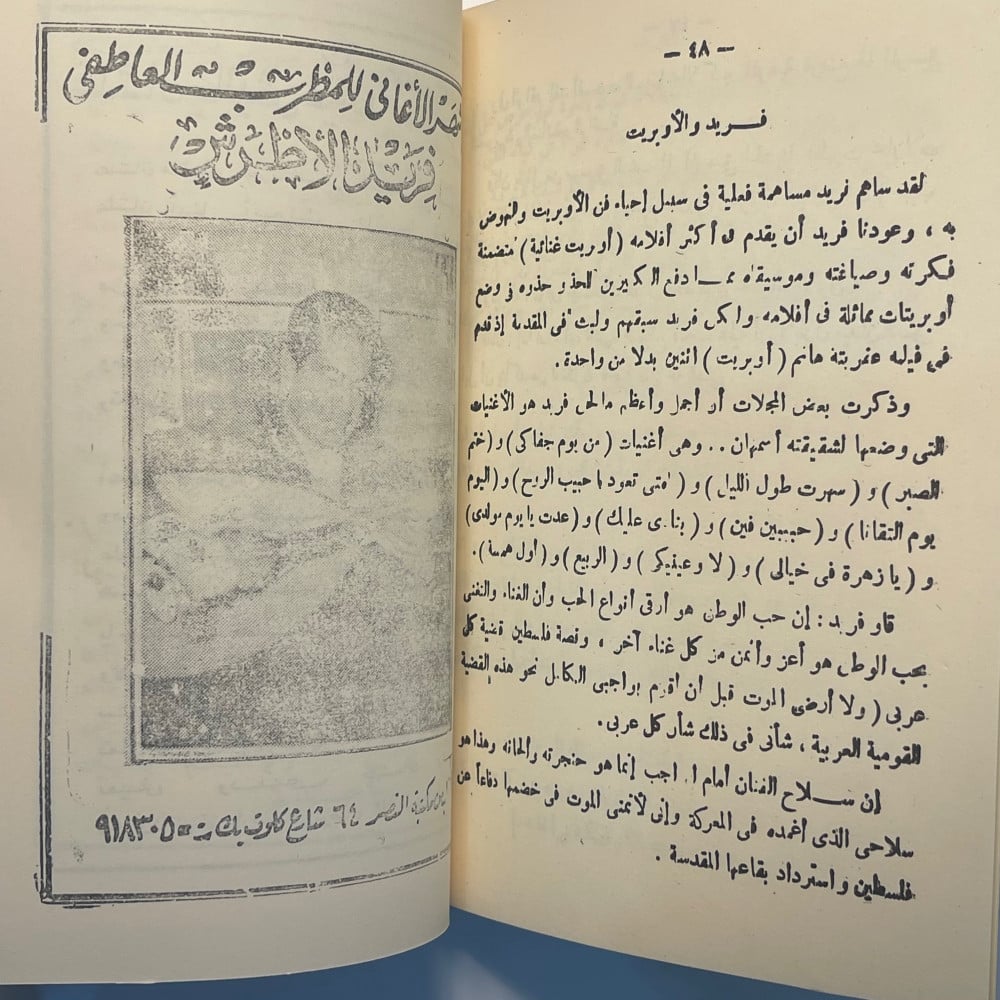 – ٤٨ –
فريد والأوبريت
لقد ساهم فريد مساهمة فعلية فى سبيل إحياء فن الأوبريت والنهوض
به ، وعودنا فريد أن يقدم فى أكثر أفلامه ( أوبريت غنائية ) متضمنة
فكرته وصياغته وموسيقاه مما دفع الكثيرين للحذو حذوه فى وضع
أوبريتات مماثلة فى أفلامه ولكن فريد سبقهم وليث فى المقدمة إذ قدم
فى فيلمه عفريته هانم ( أوبريت ) اثنتين بدلا من واحدة .
وذكرت بعض المجلات أن أجمل وأعظم مالحن فريد هو الأغنيات
التى وضعها لشقيقته أسمهان . . وهى أغنيات ( من يوم جفاكى ) و ( ختم
الصبر ) و ( سهرت طول الليل ) و ( امتى تعود يا حبيب الروح ) و ( اليوم
يوم التقانا ) و ( حبيبين فين ) و ( بنادى عليك ) و ( عدت يا يوم مولدى )
و ( يا زهرة فى خيالى ) و ( لا وعينيكى ) و ( الربيع ) و ( أول همسة ) .
قاو فريد : إن حب الوطن هو أرقى أنواع الحب وأن الغناء والتغنى
بحب الوطن هو أعز وأثمن من كل غناء آخر ، وقصة فلسطين قضية كل
عربى ( ولا أرضى الموت قبل أن أقوم بواجبى الكامل نحو هذه القضية
القومية العربية ، شأنى فى ذلك شأن كل عربى .
إن سلاح الفنان أمام اجب إنما هو حنجرته وألحانه وهذا هو
سلاحى الذى أغمده فى المعركة وإنى لأتمنى الموت فى خضمها دفاعاً عن
فلسطين واسترداد بقاعها المقدسة .
الأغانى للمطرب العاطفى
فريد الأطرش
مكتبة النصر ٦٤ شارع كلوت بك ت = ٩١٨٣٠٥